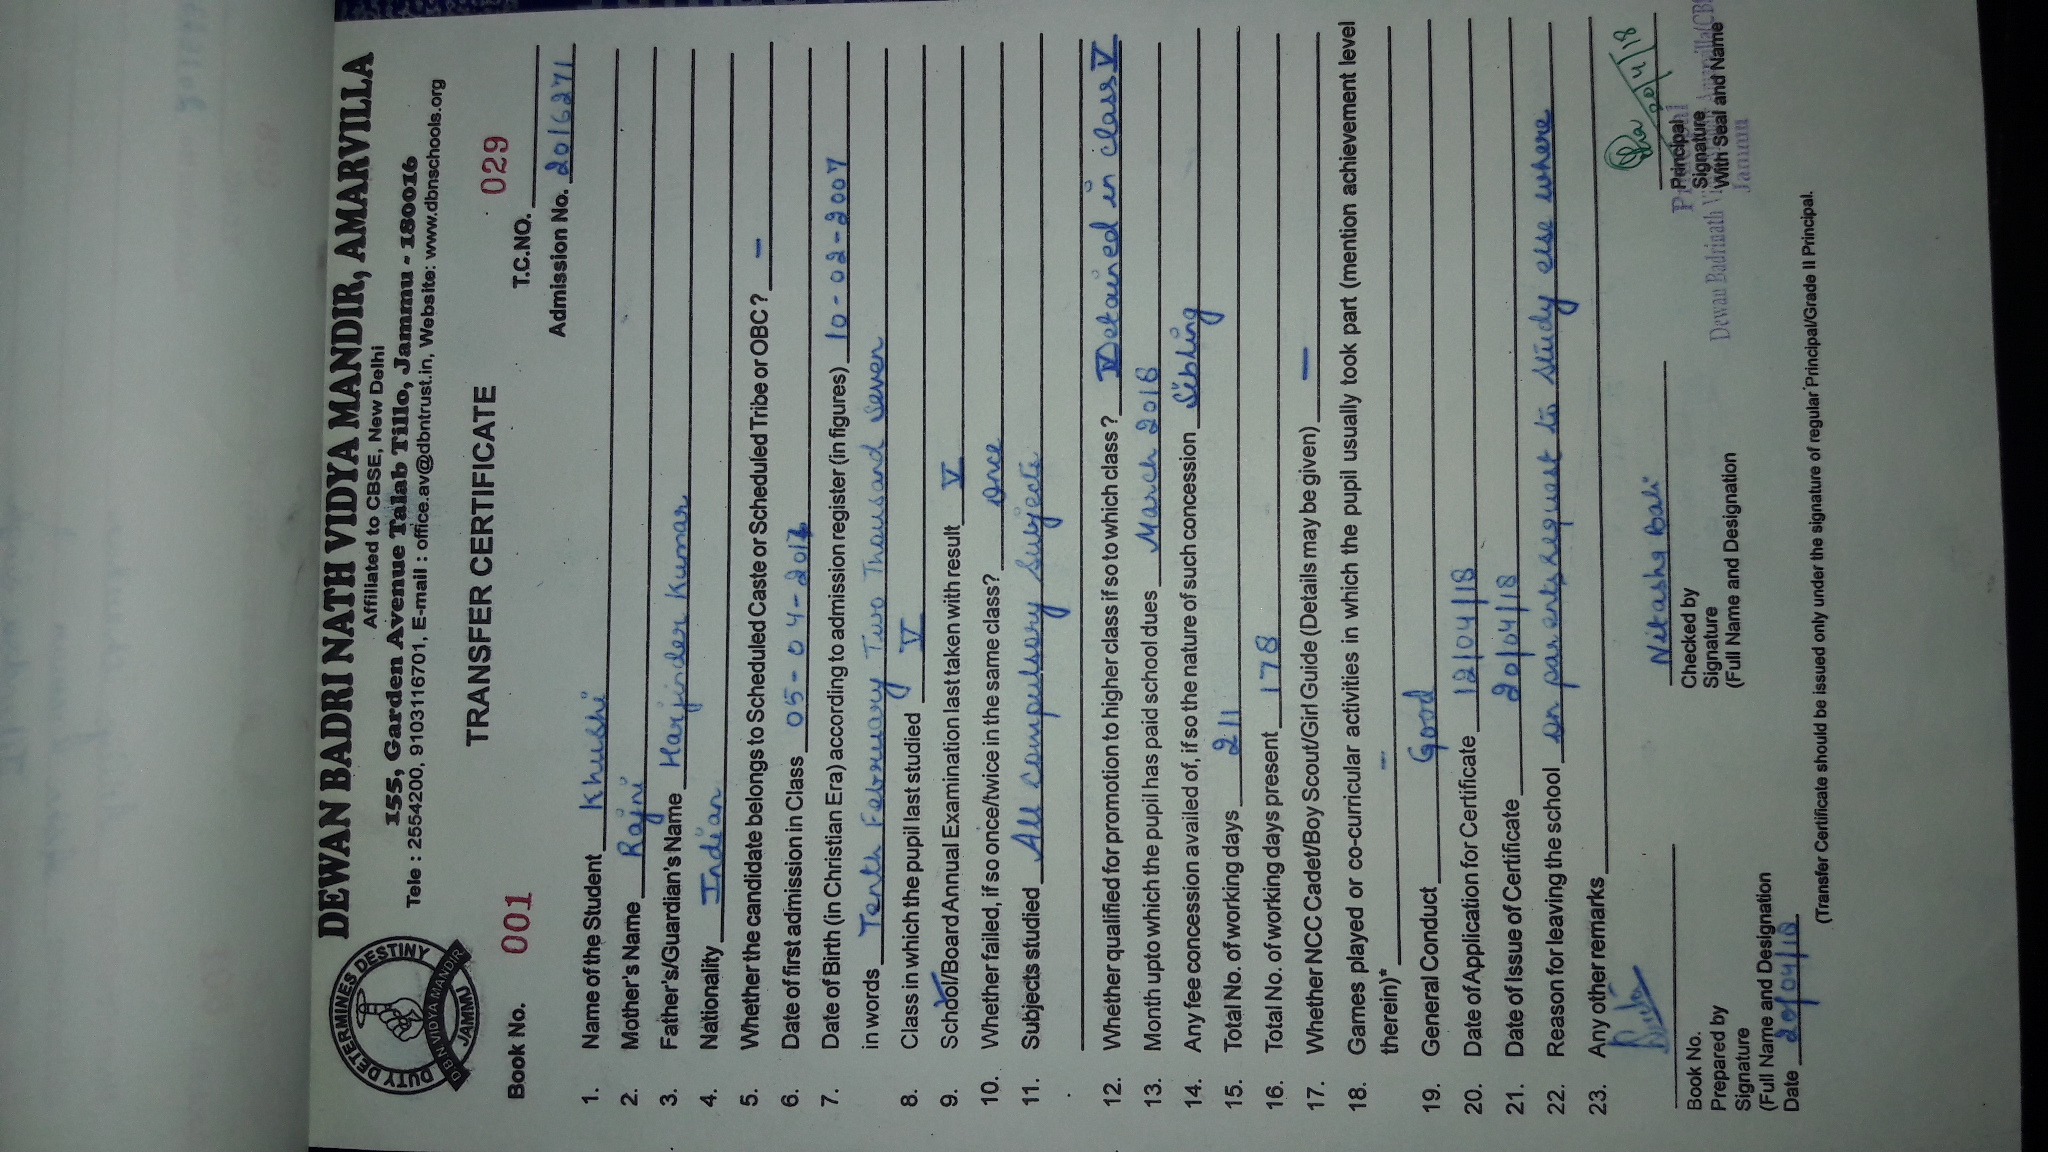 DEWAN BADRI NATH VIDYA MANDIR, AMARVILLA
Affiliated to CBSE, New Delhi
155, Garden Avenue Talab Tillo, Jammu - 180016
Tele : 2554200, 9103116701, E-mail : office.av@dbntrust.in, Website: www.dbnschools.org
DUTY DETERMINES DESTINY
D.B.N VIDYA MANDIR
JAMMU
TRANSFER CERTIFICATE
Book No. 001 T.C.NO. 029
Admission No. 2016271
1. Name of the Student Khushi
2. Mother's Name Rajni
3. Father's/Guardian's Name Harjinder Kumar
4. Nationality Indian
5. Whether the candidate belongs to Scheduled Caste or Scheduled Tribe or OBC? –
6. Date of first admission in Class 05-04-
7. Date of Birth (in Christian Era) according to admission register (in figures) 10-02-2007
in words Tenth February Two Thousand Seven
8. Class in which the pupil last studied V
9. School/Board Annual Examination last taken with result V
10. Whether failed, if so once/twice in the same class? once
11. Subjects studied All compulsory Subjects
12. Whether qualified for promotion to higher class if so to which class? Detained in class V
13. Month upto which the pupil has paid school dues March 2018
14. Any fee concession availed of, if so the nature of such concession Sibling
15. Total No. of working days 211
16. Total No. of working days present 178
17. Whether NCC Cadet/Boy Scout/Girl Guide (Details may be given) –
18. Games played or co-curricular activities in which the pupil usually took part (mention achievement level
therein)* –
19. General Conduct Good
20. Date of Application for Certificate 12/04/18
21. Date of Issue of Certificate 20/04/18
22. Reason for leaving the school on parents request to study else where
23. Any other remarks
Nitasha Bali
20/4/18
Book No.
Prepared by
Signature
(Full Name and Designation
Date 20/04/18
Checked by
Signature
(Full Name and Designation
Principal
Signature
With Seal and Name
Principal
Dewan Badrinath
Jammu
(Transfer Certificate should be issued only under the signature of regular Principal/Grade II Principal.